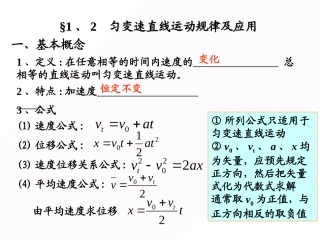 §1 、 2　匀变速直线运动规律及应用
一、基本概念
1 、定义 : 在任意相等的时间内速度的 变化 总
相等的直线运动叫匀变速直线运动。
2 、特点 : 加速度 恒定不变
3 、公式
⑴ 速度公式 : v_t = v_0 + at
⑵ 位移公式 : x = v_0 t + \frac{1}{2} at^2
⑶ 速度位移关系公式 : v_t^2 - v_0^2 = 2ax
⑷ 平均速度公式 : \bar{v} = \frac{v_0 + v_t}{2}
由平均速度求位移 x = \frac{v_0 + v_t}{2} t
① 所列公式只适用于
匀变速直线运动
② v_0 、 v_t 、 a 、 x 均
为矢量，应预先规定
正方向，然后把矢量
式化为代数式求解
通常取 v_0 为正值，与
正方向相反的取负值